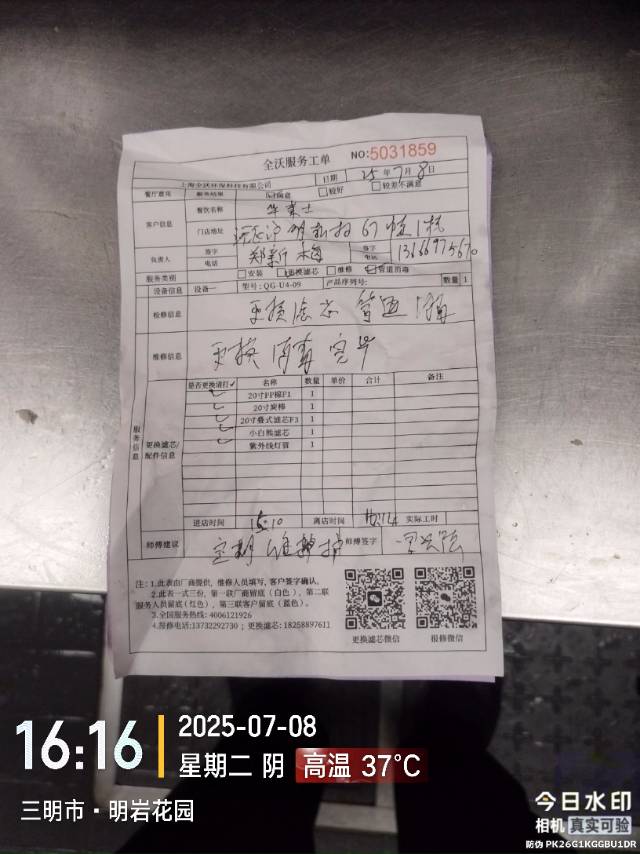 全沃服务工单
NO:5031859
上海全沃环保科技有限公司
日期 25年7月8日
餐厅意见 服务结果 满意 较好 较差不满意
客户信息
餐饮名称 华莱士
门店地址 67幢1栋
负责人 签字 郑新梅 签字
电话 电话
服务类别 安装 更换滤芯 维修 管道消毒
设备信息 设备一 型号:QG-U4-09 产品序列号: 数量 1
检修信息 更换滤芯 管道消毒
维修信息 更换 消毒 完毕
服务信息
更换滤芯/配件信息
是否更换请打✓ 名称 数量 单价 合计 备注
✓ 20寸PP棉F1 1
✓ 20寸旋棒 1
✓ 20寸叠式滤芯F3 1
✓ 小白熊滤芯 1
✓ 紫外线灯管 1
进店时间 15:10 离店时间 16:14 实际工时
师傅建议 定期维护 师傅签字
注:1.此表由厂商提供,维修人员填写,客户签字确认。
2.此表一式三份,第一联厂商留底(白色)、第二联
服务人员留底(红色)、第三联客户留底(蓝色)。
3.全国服务热线:4006121926
4.报修电话:13732292730;更换滤芯:18258897611
更换滤芯微信 报修微信
16:16
2025-07-08
星期二 阴 高温 37°C
三明市·明岩花园
今日水印
相机 真实可验
防伪 PK26G1KGGBU1DR